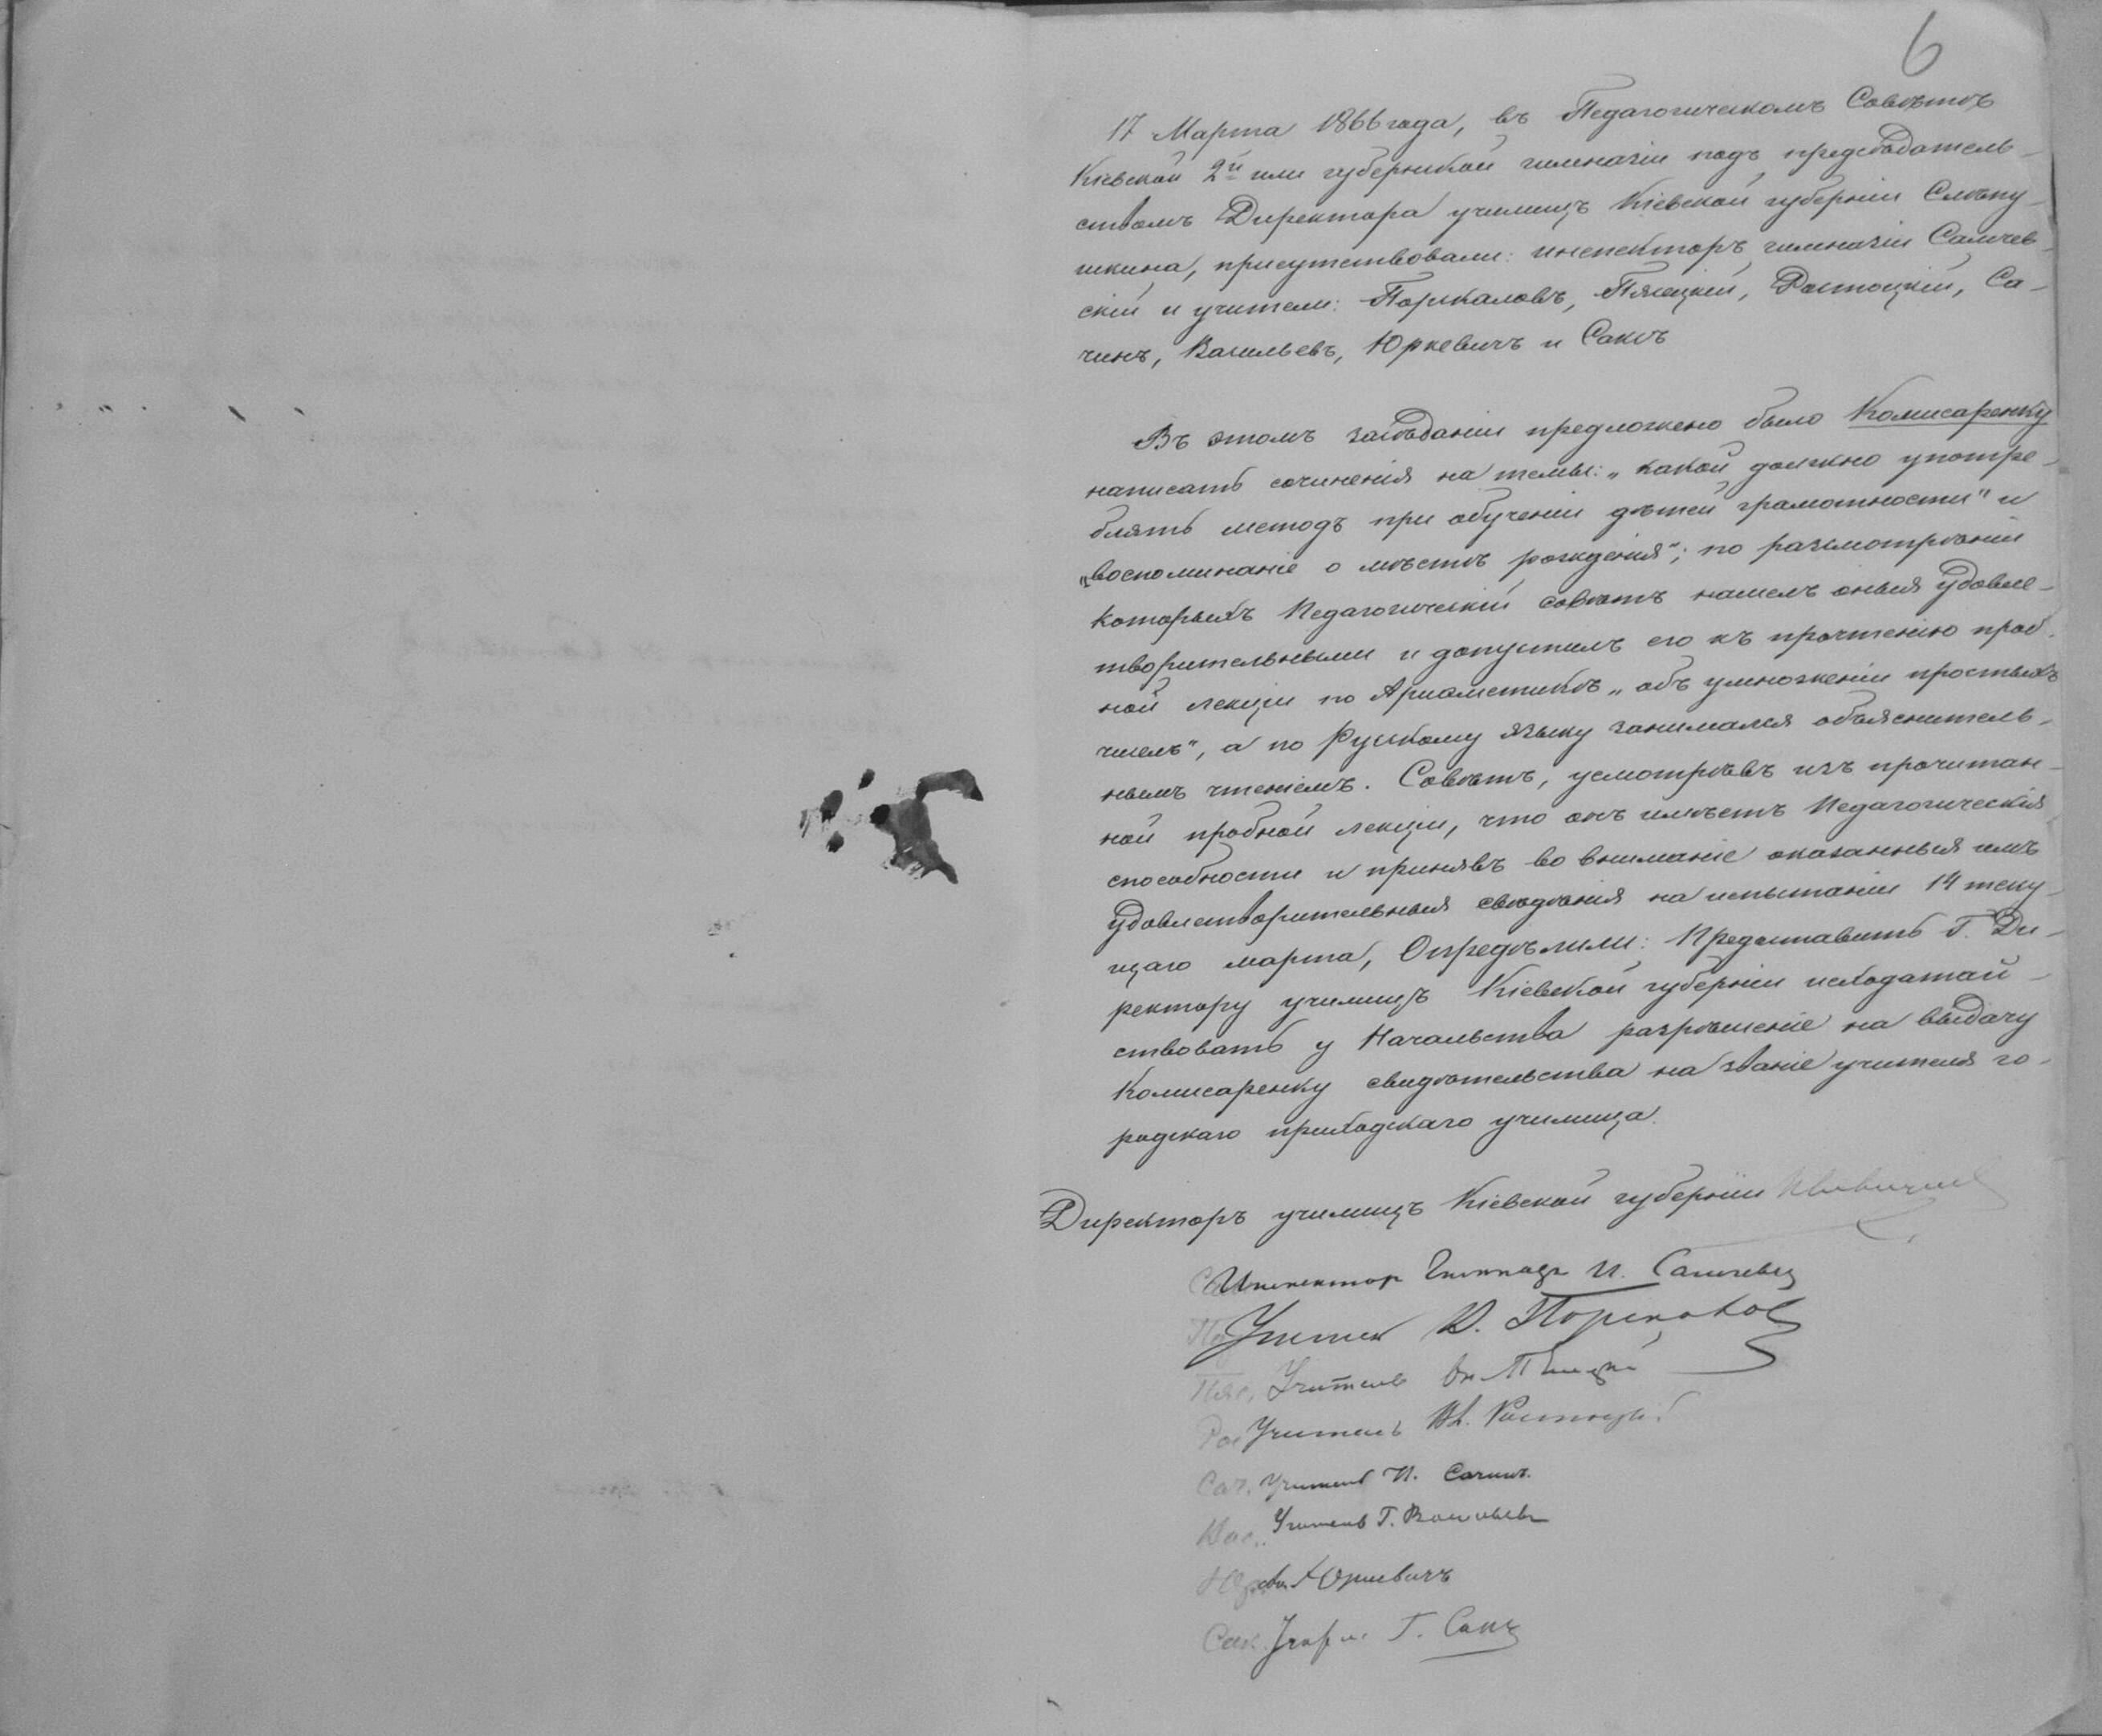 6
17 Марта 1866 года, въ Педагогическомъ Совѣтѣ
Кіевской 2й или губернской гимназіи подъ предсѣдатель-
ствомъ Директора училищъ Кіевской губерніи Слѣпу-
шкина, присутствовали: инспекторъ гимназіи Самчев-
скій и учители: Поршаловъ, Пясецкій, Растоцкій, Са-
чинъ, Васильевъ, Юркевичъ и Саксъ
Въ этомъ засѣданіи предложено было Комисаренку
написать сочиненія на темы: „какой должно употре-
блять методъ при обученіи дѣтей грамотности" и
„воспоминаніе о мѣстѣ рожденія"; по разсмотрѣніи
которыхъ Педагогическій совѣтъ нашелъ оныя удовле-
творительными и допустилъ его къ прочтенію проб-
ной лекціи по Ариѳметикѣ „объ умноженіи простыхъ
чиселъ", а по Русскому языку занимался объяснитель-
нымъ чтеніемъ. Совѣтъ, усмотрѣвъ изъ прочитан-
ной пробной лекціи, что онъ имѣетъ Педагогическія
способности и принявъ во вниманіе оказанныя имъ
удовлетворительныя свѣдѣнія на испытаніи 14 теку-
щаго марта, Опредѣлили: Предоставить Г. Ди-
ректору училищъ Кіевской губерніи исходатай-
ствовать у Начальства разрѣшеніе на выдачу
Комисаренку свидѣтельства на званіе учителя го-
родскаго приходскаго училища.
Директоръ училищъ Кіевской губерніи
Инспектор Гимназіи И. Самчевск
Учитель
Учитель
Учитель Растоцкій
Сач. Учитель И. Сачинъ.
Вас. Учитель Г. Васильевъ
Юркевичъ
Сак. Г. Саксъ